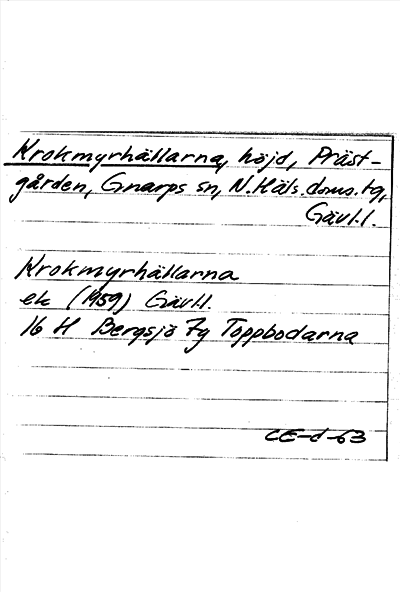 Krokmyrhällarna, höjd, Präst-
gården, Gnarps sn, N. Häls. doms. tg,
Gävl.l.
Krokmyrhällarna
ek (1959) Gävl.l.
16 H Bergsjö 7g Toppbodarna
CE-d-63